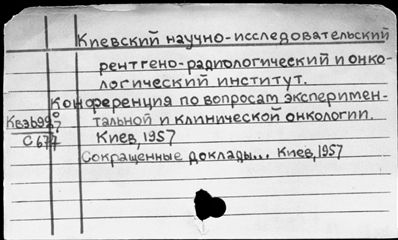 Киевский научно-исследовательский
рентгено-радиологический и онко-
логический институт.
Конференция по вопросам эксперимен-
тальной и клинической онкологии.
Киев, 1957
Сокращенные доклады... Киев, 1957
С677